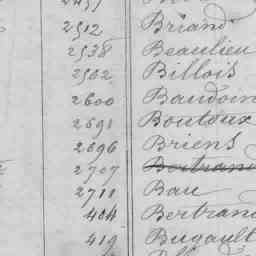 2512 Briand
2538 Beaulieu
2562 Billois
2600 Baudoin
2691 Boutoux
2696 Briens
2707 Bertrand
2711 Bau
404 Bertrand
419 Bugault